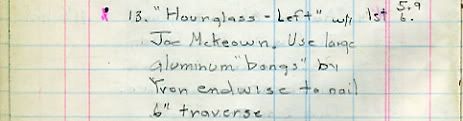 13. "Hourglass - Left" w/ 1st 5.9
Joe McKeown. Use large 6.
aluminum "bongs" by
Yvon endwise to nail
6" traverse